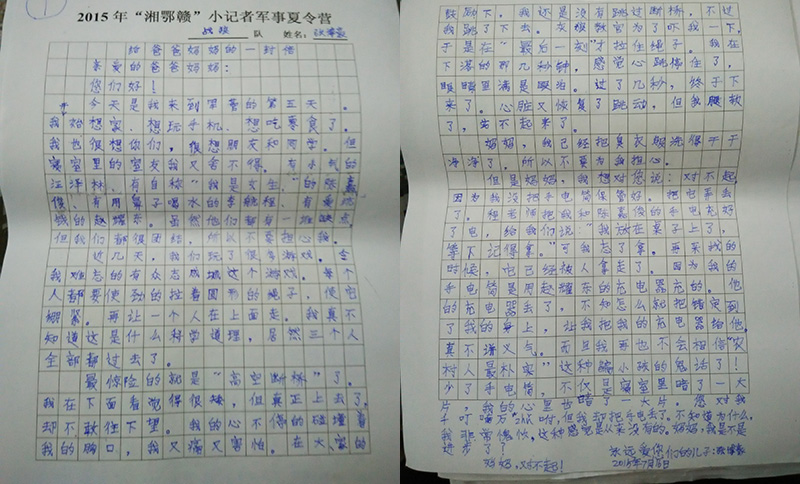 2015年“湘鄂赣”小记者军事夏令营
战狼 队 姓名:
给爸爸妈妈的一封信
亲爱的爸爸妈妈:
您们好!
今天是我来到军营的第五天。
我始想家、想玩手机、想吃零食了。
我也很想你们,很想朋友和同学。但
寝室里的室友我又舍不得。有小气的
汪洋林、有自称“我是女生”的陈嘉
俊、有用鼻子喝水的李
钱的赵耀东。虽然他们都有一堆缺点,
但我们都很团结,所以不要担心我。
这几天,我们玩了很多游戏。令
我难忘的有众志成城这个游戏。每个
人都要使劲的拉着圆形的绳子,使它
绷紧。再让一个人在上面走。我真不
知道这是什么科学道理,居然三个人
全部都过去了。
最惊险的就是“高空断桥”了。
我在下面看觉得很矮,但真正上去了,
却不敢往下望。我的心不停的碰撞着
我的胸口,我又痛又害怕。在大家的
鼓励下,我还是没有跳过断桥,不过
我跳了下去。灰娘教官为了吓我一下,
于是在“最后一刻”才拉住绳子。我在
下落的那几秒钟,感觉心跳停住了,
眼睛里满是眼泪。过了几秒,终于下
来了。心脏又恢复了跳动,但我腿软
了,站不起来了。
妈妈,我已经把臭衣服洗得干干
净净了,所以不要为我担心。
但是妈妈,我想对您说:对不起,
因为我没把手电筒保管好。把它弄丢
了。程老师把我和陈嘉俊的手电充好
了电,给我们说:“我放在桌子上了,
等下记得拿。”可我忘了拿。再来找的
时候,它已经被人拿走了。因为我的
手电筒是用赵耀东的充电器充的。他
的充电器丢了,不知怎么就把错定到
了我的身上,让我把我的充电器给他。
真不讲义气。而且我再也不会相信“农
村人最朴实”这种骗小孩的鬼话了!
少了手电筒,不仅是寝室里暗了一大
片,我的心里也暗了一大片。您对我
千叮咛万嘱咐,但我却把手电丢了。不知道为什么,
我非常愧疚,这种感觉是从来没有的。妈妈,我是不是
进步了!
妈妈,对不起!
永远爱您们的儿子: